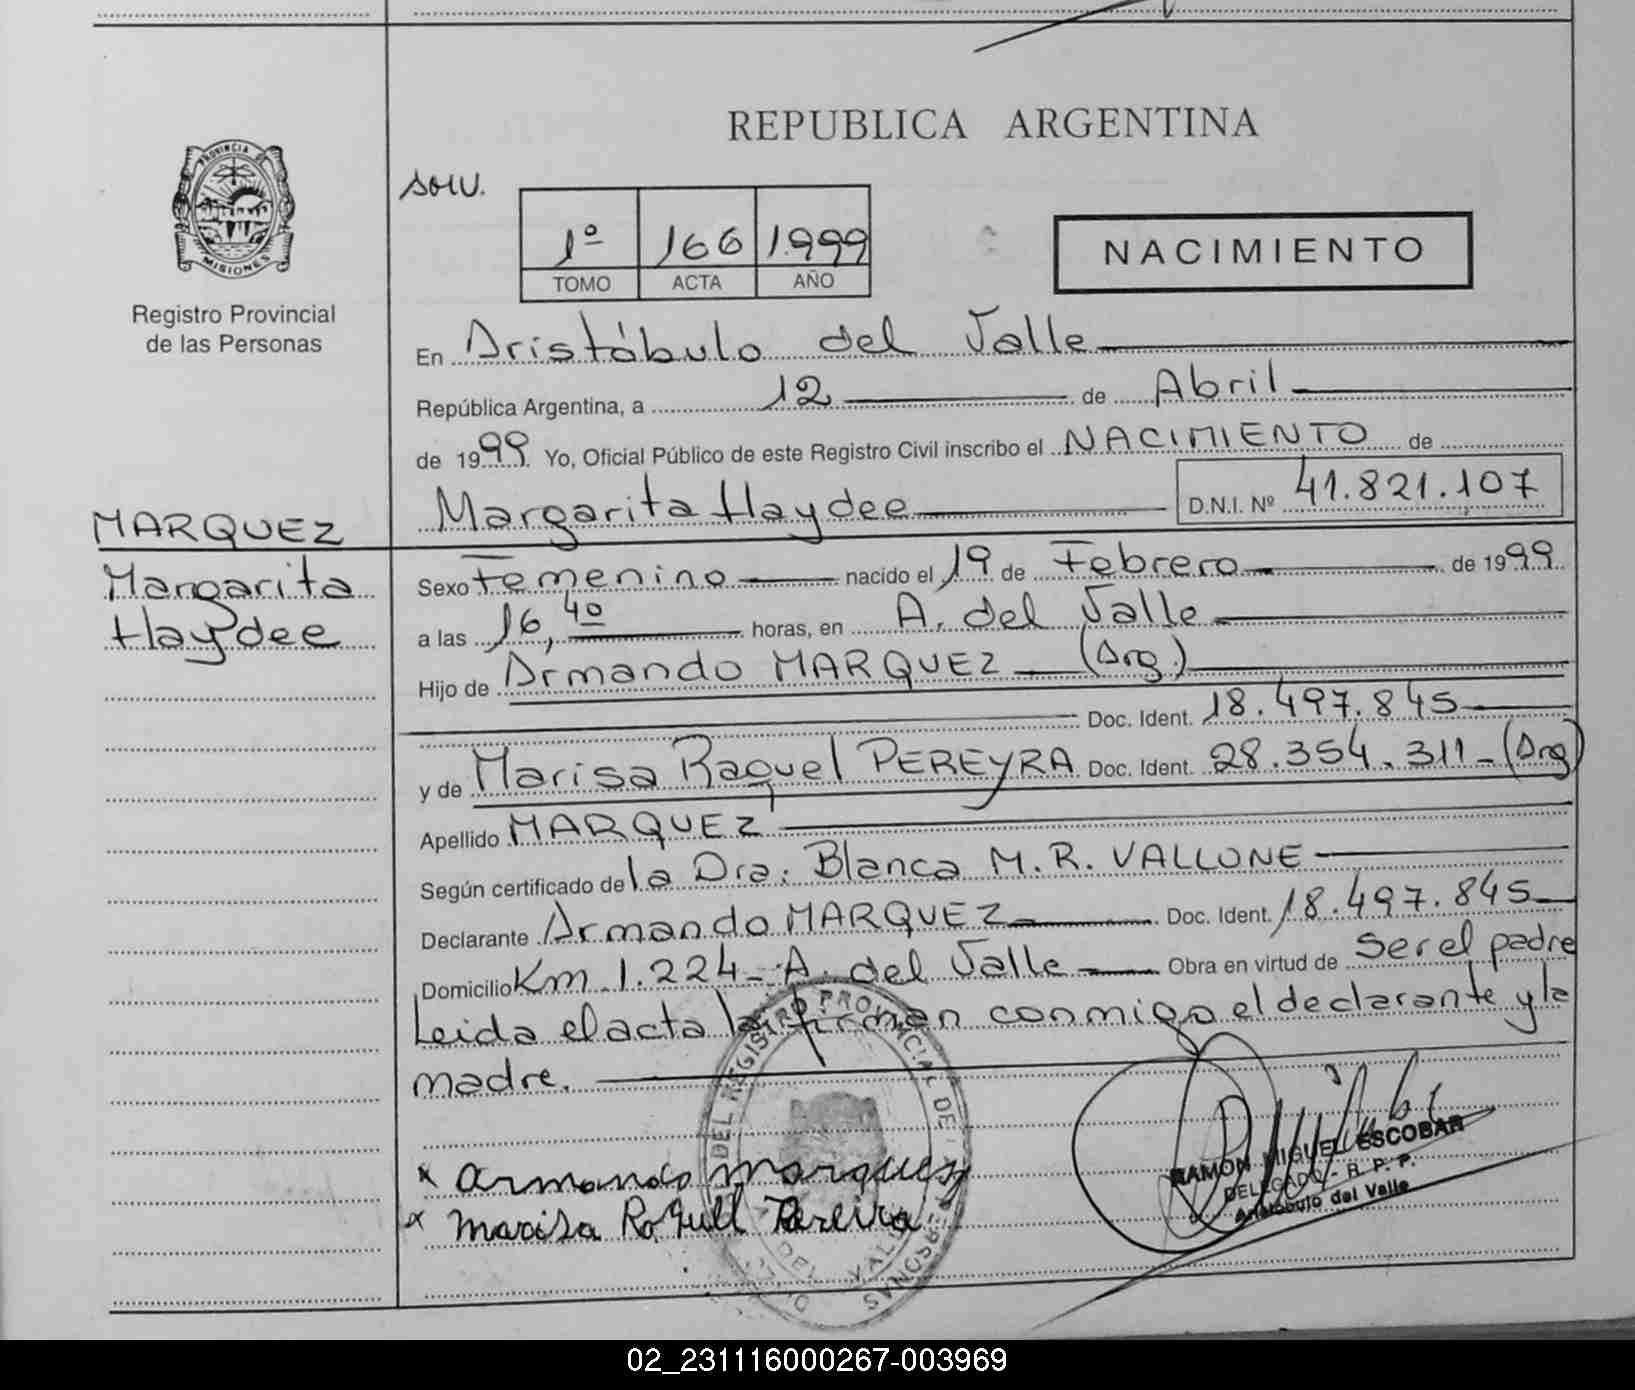 REPUBLICA ARGENTINA
PROVINCIA DE
MISIONES
Registro Provincial
de las Personas
1º 166 1.999
TOMO ACTA AÑO
NACIMIENTO
En Aristóbulo del Valle
República Argentina, a 12 de Abril
de 1999 Yo, Oficial Público de este Registro Civil inscribo el NACIMIENTO de
Margarita Haydee D.N.I. Nº 41.821.107
MARQUEZ
Margarita
Haydee
Sexo Femenino nacido el 19 de Febrero de 1999
a las 16,40 horas, en A. del Valle
Hijo de Armando MARQUEZ (Arg.)
Doc. Ident. 18.497.845
y de Marisa Raquel PEREYRA Doc. Ident. 28.354.311-(Arg)
Apellido MARQUEZ
Según certificado de la Dra: Blanca M. R. VALLONE
Declarante Armando MARQUEZ Doc. Ident. 18.497.845
Domicilio Km. 1.224- A. del Valle Obra en virtud de ser el padre
Leida el acta la firman conmigo el declarante y la
madre.
DEL REGISTRO PROVINCIAL DE LAS PERSONAS
DEL VALLE
x armando marquez
x marisa Raquell Pereira
RAMON MIGUEL ESCOBAR
DELEGADO - R. P. P.
Aristobulo del Valle
02_231116000267-003969